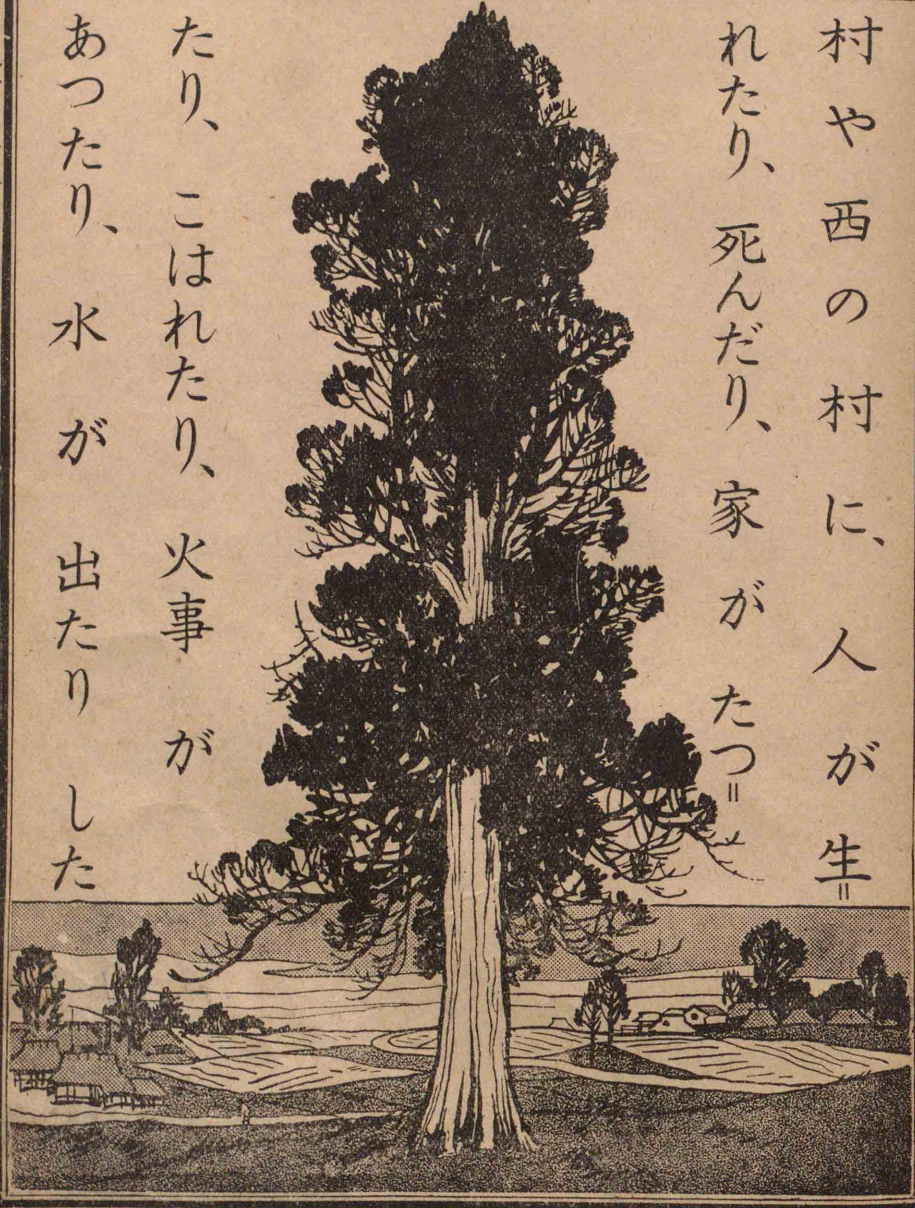 村や西の村に、人が生=
れたり、死んだり、家がたつ=
たり、こはれたり、火事が
あつたり、水が出たりした